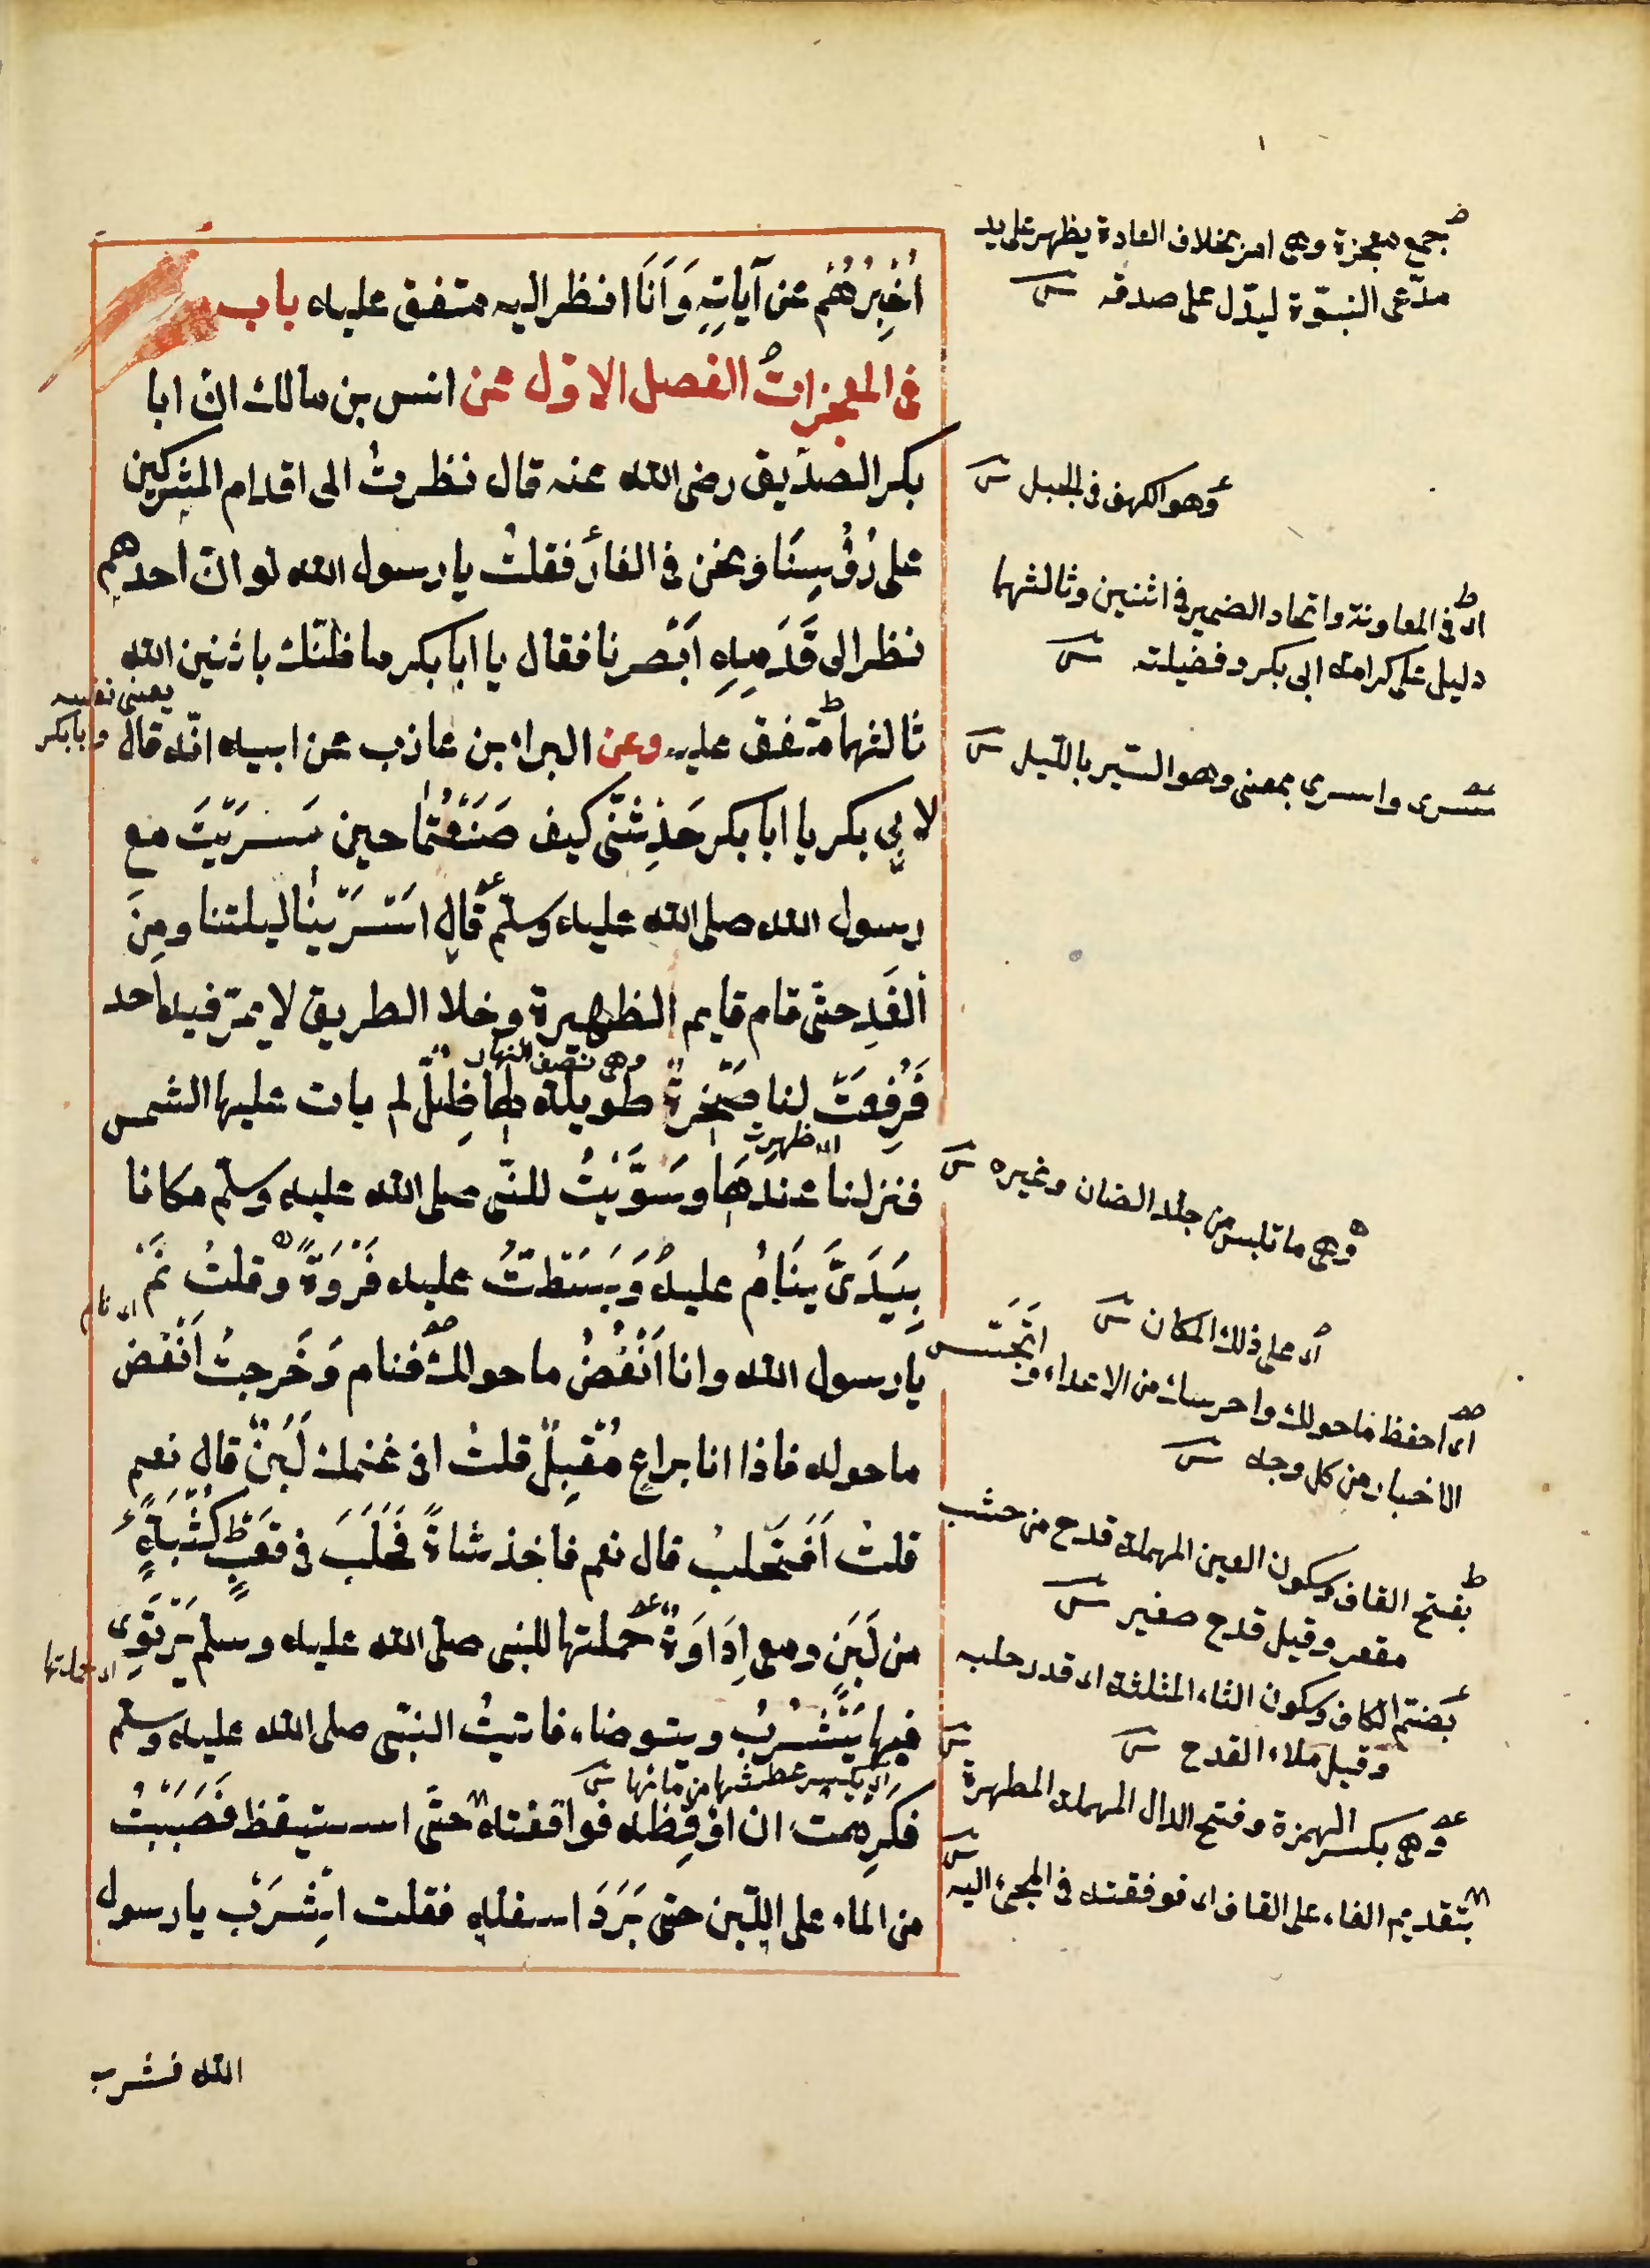 أُخْبِرُهُمْ عن آياتِهِ وَأَنَا انظر اليه متفق عليه باب
فى المعجزات الفصل الاول عن انس بن مالك انّ ابا
بكر الصدّيق رضى الله عنه قال نظرتُ الى اقدام المشركين
على رُؤُسِنَا ونحن فى الغار فقلتُ يا رسول الله لو انّ احدهم
نظر الى قَدَمِهِ اَبْصرنا فقال يا ابا بكر ما ظنّك باثنين الله
يعنى نفسه
وابابكر
ثالثهما متفق عليه وعن البراء بن عازب عن ابيه انّه قال
لابى بكر يا ابا بكر حَدِّثْنى كيف صَنَعْتُما حين سَرَيْتَ مع
رسول الله صلى الله عليه وسلّم قال اَسْرَيْنا ليلتنا ومِنَ
الغَدِ حتّى قام قايم الظهيرة وخلا الطريق لا يمرّ فيه احد
وهى نصف النهار
فَرُفِعَتْ لنا صَخْرَةٌ طويلة لها ظِلٌّ لم يات عليها الشمس
اى ظهرت
فنزلنا عندَها وسَوَّيْتُ للنّبى صلى الله عليه وسلّم مكانا
بِيَدَىَّ يَنَامُ عليه وَبَسَطْتُ عليه فَرْوَةً وقلتُ نَمْ
اى نام
يا رسول الله وانا اَنْفُضُ ما حولك فنام وَخَرجتُ اَنْفُض
ما حوله فاذا انا براعٍ مُقْبِلٍ قلتُ افى غنمك لَبَنٌ قال نعم
قلتُ اَفَتَحلبُ قال نعم فاخذ شاةً فحَلَبَ فى قَعْبٍ كُثْبَةً
من لَبَنٍ ومعى اِدَاوَةٌ حملتها للنبى صلى الله عليه وسلم يَرْتَوِى
اى حملتها
فيها يَشْرَبُ ويتوضاء فاتيتُ النبّى صلى الله عليه وسلّم
اى يكسر عطشها من مائها
فكَرِهت ان اُوْقِظَه فوافقتُه حتّى استيقظ فَصَبَبْتُ
من الماء على اللّبن حتى بَرَدَ اسفلُه فقلت اِشْرَبْ يا رسول
الله فشرب
جمع معجزة وهى امر بخلاف العادة يظهر على يد
مدّعى النبّوة ليدّل على صدقه
وهو الكهف فى الجبل
اى فى المعاونة واتحاد الضمير فى اثنين وثالثهما
دليل على كرامة ابى بكر وفضيلته
سرى واسرى بمعنى وهو السّير بالّليل
وهى ما تلبس من جلد الضان وغيره
اى على ذلك المكان
اى احفظ ما حولك واحرسك من الاعداء واَتَجَسّس
الاخبار من كل وجه
بفتح القاف وسكون العين المهملة قدح من خشب
مقعر وقيل قدح صغير
بضّم الكاف وسكون الثاء المثلثة اى قدر حلبه
وقيل ملاء القدح
وهى بكسر الهمزة وفتح الدال المهملة المطهرة
بتقديم الفاء على القاف اى فوفقته فى المجئ اليه